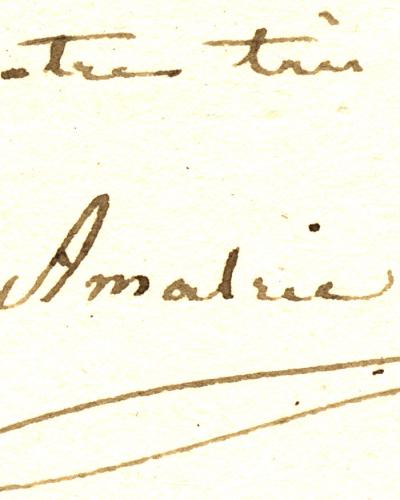 -tre très
Amalric